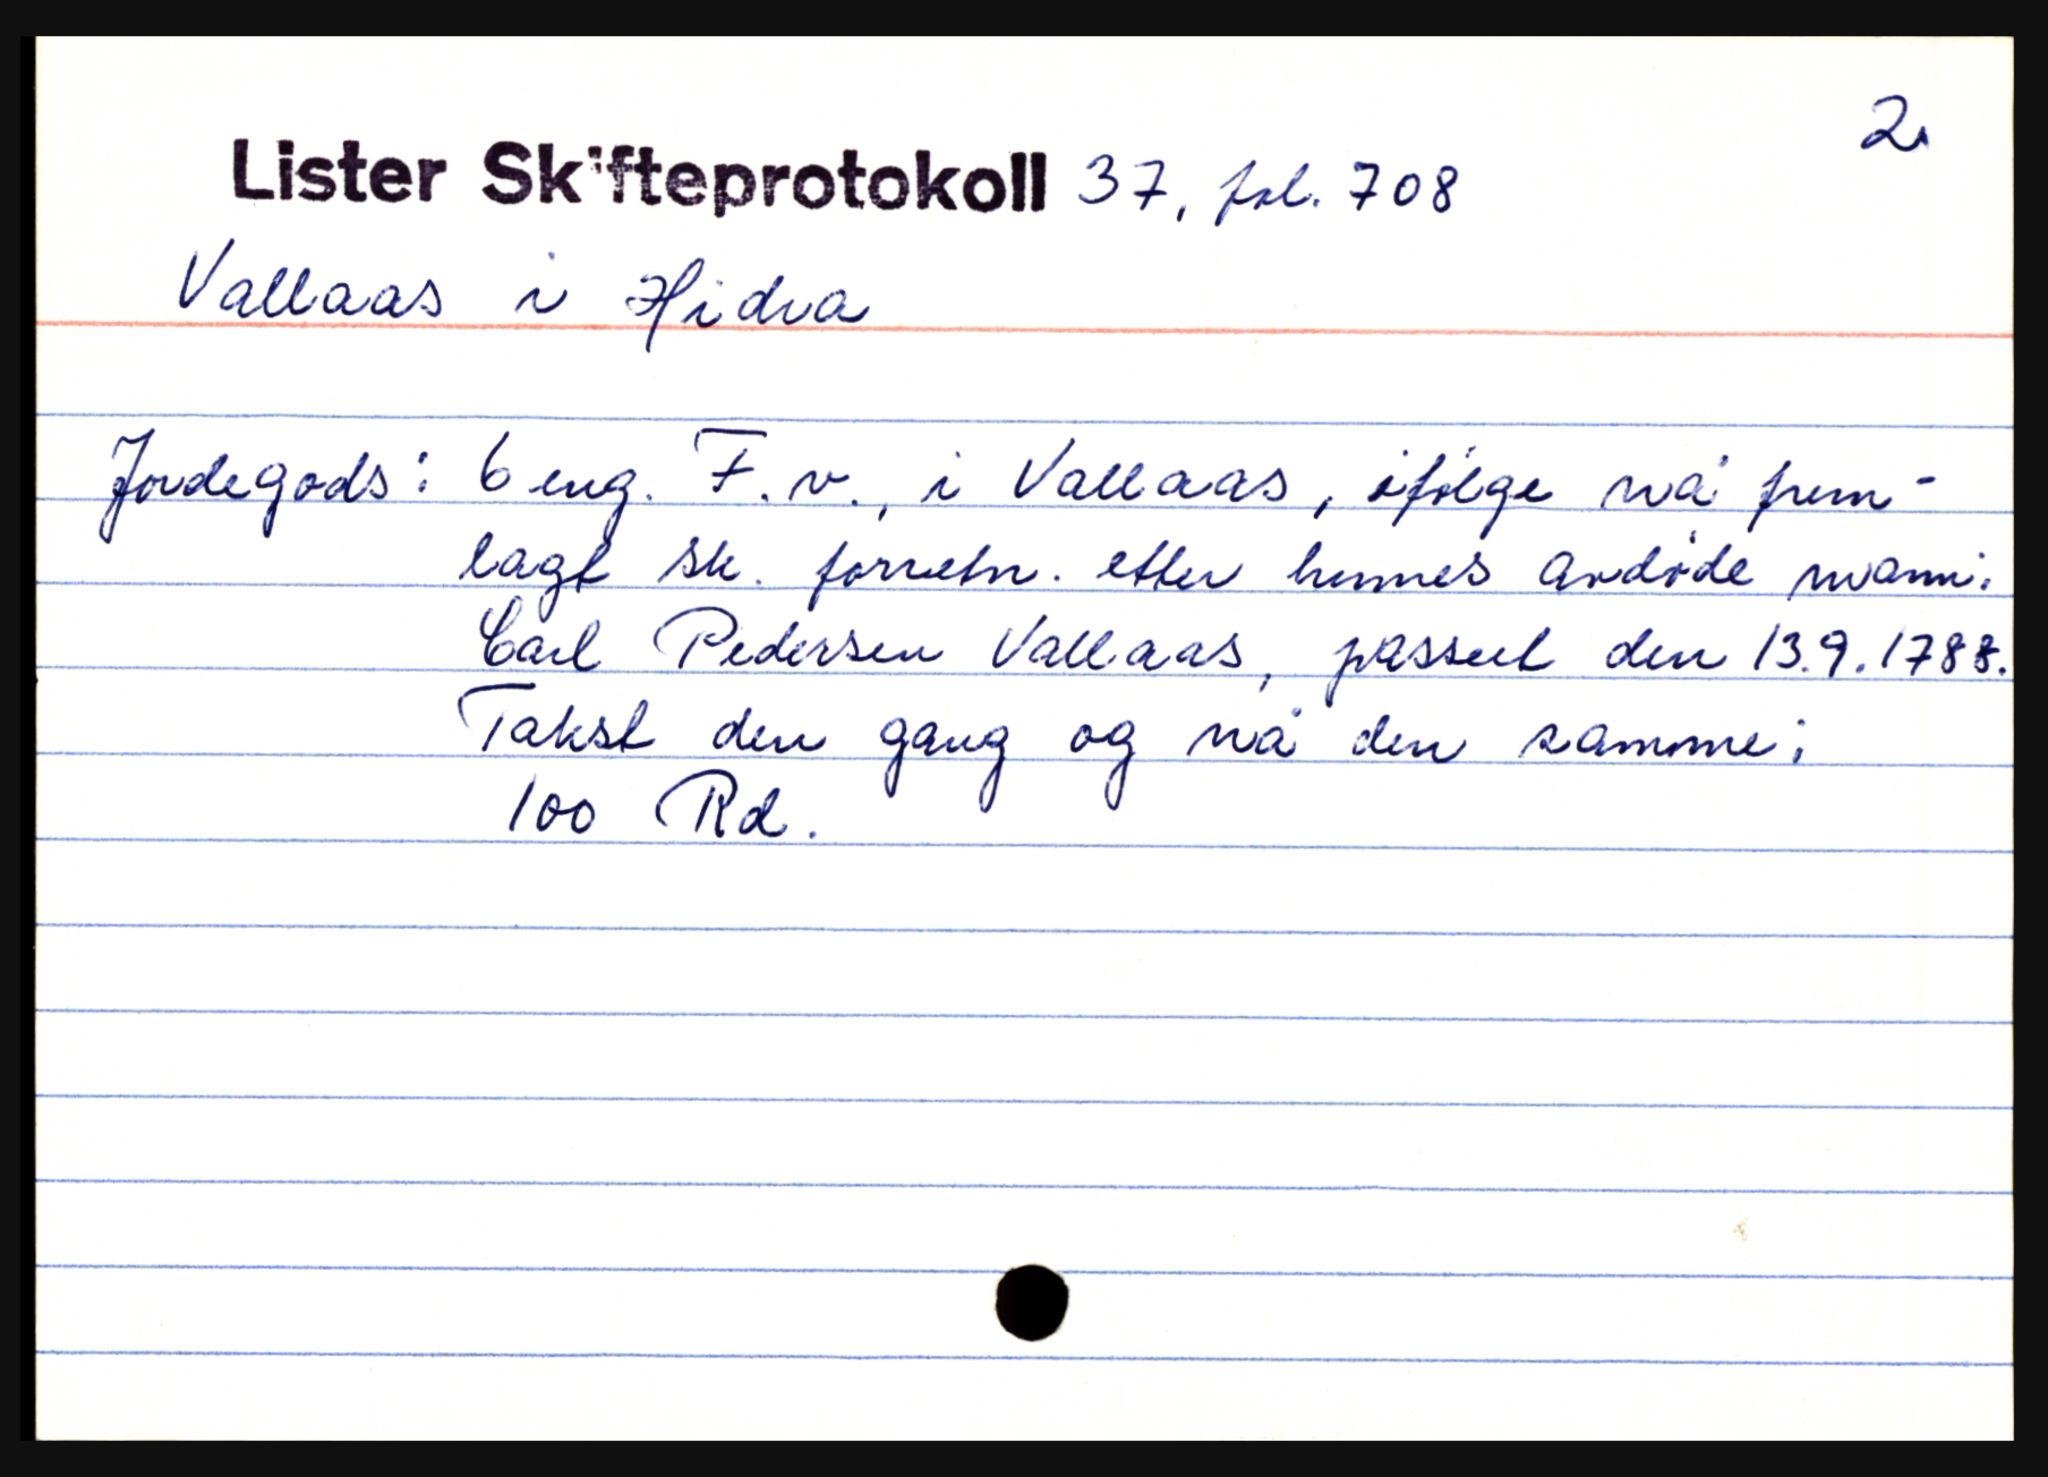 2.
Lister Skifteprotokoll 37, fol. 708
Vallaas i Hidra
Jordegods: 6 eng. F. v., i Vallaas, ifølge nå frem-
lagt sk. forretn. etter hennes avdøde mann:
Carl Pedersen Vallaas, passeret den 13.9.1788.
Takst den gang og nå den samme:
100 Rd.